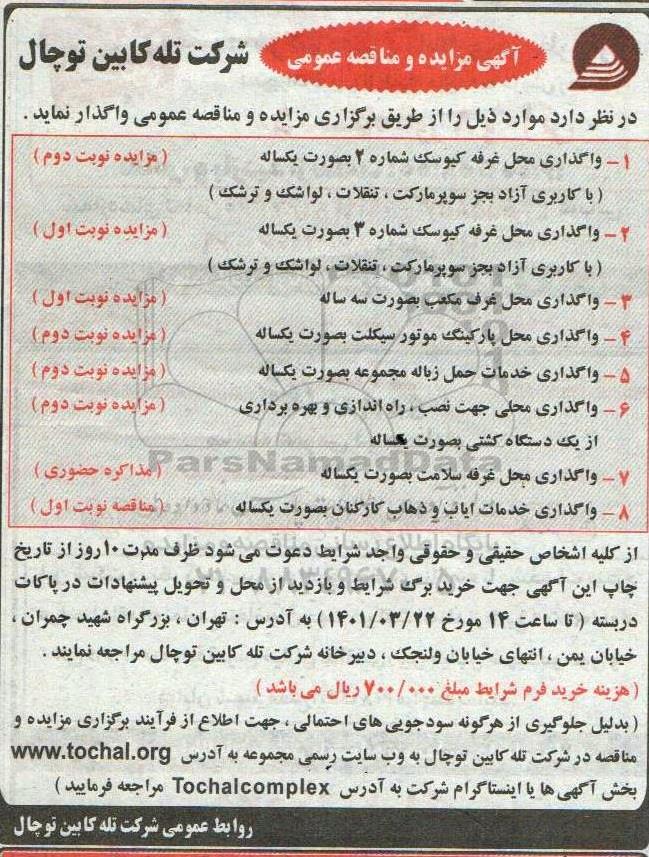 آگهی مزایده و مناقصه عمومی
شرکت تله کابین توچال
در نظر دارد موارد ذیل را از طریق برگزاری مزایده و مناقصه عمومی واگذار نماید .
۱ – واگذاری محل غرفه کیوسک شماره ۲ بصورت یکساله ( مزایده نوبت دوم )
( با کاربری آزاد بجز سوپرمارکت ، تنقلات ، لواشک و ترشک )
۲ – واگذاری محل غرفه کیوسک شماره ۳ بصورت یکساله ( مزایده نوبت اول )
( با کاربری آزاد بجز سوپرمارکت ، تنقلات ، لواشک و ترشک )
۳ – واگذاری محل غرف مکعب بصورت سه ساله ( مزایده نوبت اول )
۴ – واگذاری محل پارکینگ موتور سیکلت بصورت یکساله ( مزایده نوبت دوم )
۵ – واگذاری خدمات حمل زباله مجموعه بصورت یکساله ( مزایده نوبت دوم )
۶ – واگذاری محلی جهت نصب ، راه اندازی و بهره برداری ( مزایده نوبت دوم )
از یک دستگاه کشتی بصورت یکساله
ParsNamadData
۷ – واگذاری محل غرفه سلامت بصورت یکساله ( مذاکره حضوری )
۸ – واگذاری خدمات ایاب و ذهاب کارکنان بصورت یکساله ( مناقصه نوبت اول )
از کلیه اشخاص حقیقی و حقوقی واجد شرایط دعوت می شود ظرف مدت ۱۰ روز از تاریخ
چاپ این آگهی جهت خرید برگ شرایط و بازدید از محل و تحویل پیشنهادات در پاکات
دربسته ( تا ساعت ۱۴ مورخ ۱۴۰۱/۰۳/۲۲ ) به آدرس : تهران ، بزرگراه شهید چمران ،
خیابان یمن ، انتهای خیابان ولنجک ، دبیرخانه شرکت تله کابین توچال مراجعه نمایند .
( هزینه خرید فرم شرایط مبلغ ۷۰۰/۰۰۰ ریال می باشد )
( بدلیل جلوگیری از هرگونه سودجویی های احتمالی ، جهت اطلاع از فرآیند برگزاری مزایده و
مناقصه در شرکت تله کابین توچال به وب سایت رسمی مجموعه به آدرس www.tochal.org
بخش آگهی ها یا اینستاگرام شرکت به آدرس Tochalcomplex مراجعه فرمایید )
روابط عمومی شرکت تله کابین توچال